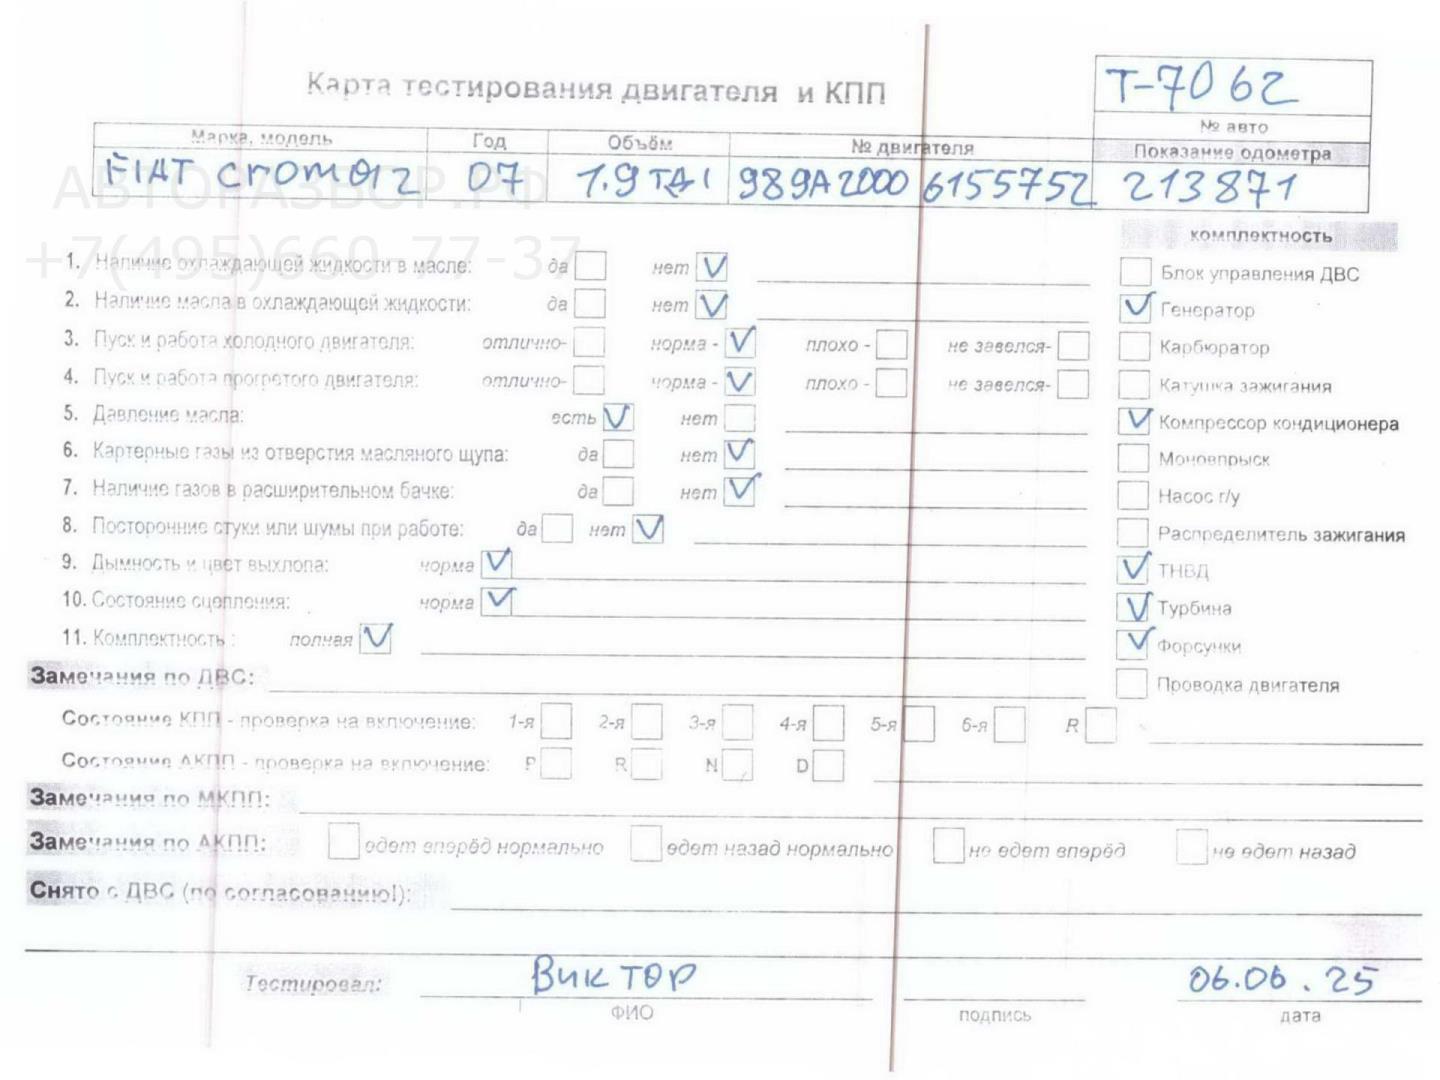 Карта тестирования двигателя и КПП
Т-7062
№ авто
Марка, модель Год Объём № двигателя Показание одометра
FIAT croma 2 07 1.9 TDI 989A2000 6155752 213871
АВТОРАЗБОР.РФ
+7(495)660-77-37
комплектность
1. Наличие охлаждающей жидкости в масле: да нет ✓
Блок управления ДВС
2. Наличие масла в охлаждающей жидкости: да нет ✓
✓ Генератор
3. Пуск и работа холодного двигателя: отлично- норма - ✓ плохо - не завелся-
Карбюратор
4. Пуск и работа прогретого двигателя: отлично- норма - ✓ плохо - не завелся-
Катушка зажигания
5. Давление масла: есть ✓ нет
✓ Компрессор кондиционера
6. Картерные газы из отверстия масляного щупа: да нет ✓
Моновпрыск
7. Наличие газов в расширительном бачке: да нет ✓
Насос г/у
8. Посторонние стуки или шумы при работе: да нет ✓
Распределитель зажигания
9. Дымность и цвет выхлопа: норма ✓
✓ ТНВД
10. Состояние сцепления: норма ✓
✓ Турбина
11. Комплектность : полная ✓
✓ Форсунки
Замечания по ДВС:
Проводка двигателя
Состояние КПП - проверка на включение: 1-я 2-я 3-я 4-я 5-я 6-я R
Состояние АКПП - проверка на включение: P R N D
Замечания по МКПП:
Замечания по АКПП: едет вперёд нормально едет назад нормально не едет вперёд не едет назад
Снято с ДВС (по согласованию!):
Тестировал: Виктор 06.06.25
ФИО подпись дата